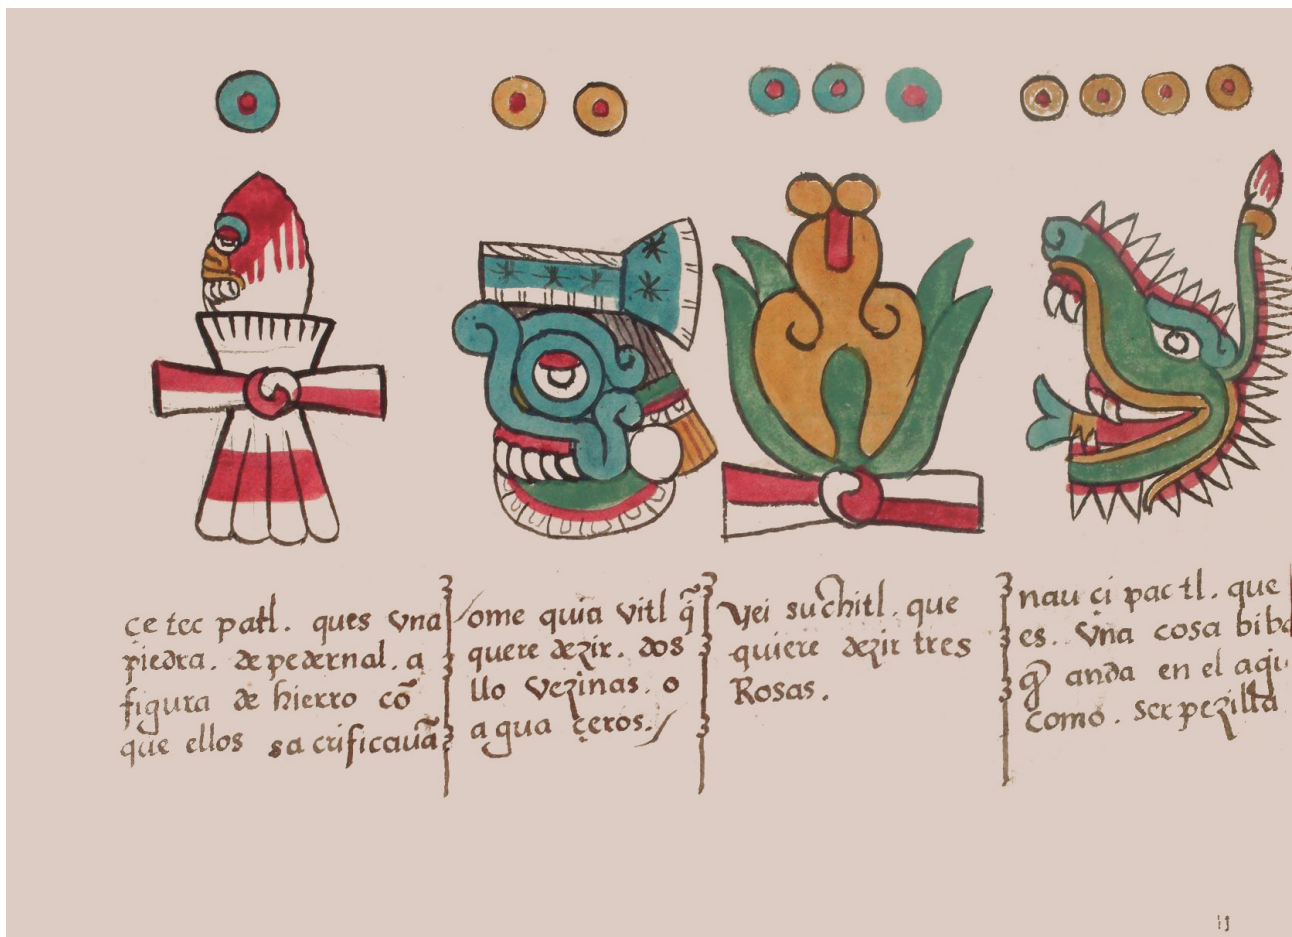 çe tec patl. ques vna
piedra. de pedernal. a
figura de hierro cõ
que ellos sacrificauã
ome quia vitl q̃
quere dezir. dos
llo vezinas. o
agua çeros.
yei suchitl. que
quiere dezir tres
Rosas.
nau çi pac tl. que
es. vna cosa
q̃ anda en el
como. serpezilla